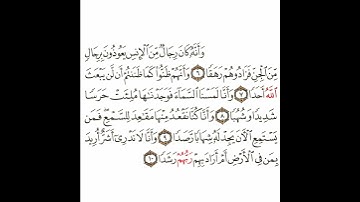 وَأَنَّهُۥ كَانَ رِجَالٌ مِّنَ ٱلْإِنسِ يَعُوذُونَ بِرِجَالٍ
مِّنَ ٱلْجِنِّ فَزَادُوهُمْ رَهَقًا ٦ وَأَنَّهُمْ ظَنُّوا۟ كَمَا ظَنَنتُمْ أَن لَّن يَبْعَثَ
ٱللَّهُ أَحَدًا ٧ وَأَنَّا لَمَسْنَا ٱلسَّمَآءَ فَوَجَدْنَٰهَا مُلِئَتْ حَرَسًا
شَدِيدًا وَشُهُبًا ٨ وَأَنَّا كُنَّا نَقْعُدُ مِنْهَا مَقَٰعِدَ لِلسَّمْعِ ۖ فَمَن
يَسْتَمِعِ ٱلْـَٔانَ يَجِدْ لَهُۥ شِهَابًا رَّصَدًا ٩ وَأَنَّا لَا نَدْرِىٓ أَشَرٌّ أُرِيدَ
بِمَن فِى ٱلْأَرْضِ أَمْ أَرَادَ بِهِمْ رَبُّهُمْ رَشَدًا ١٠